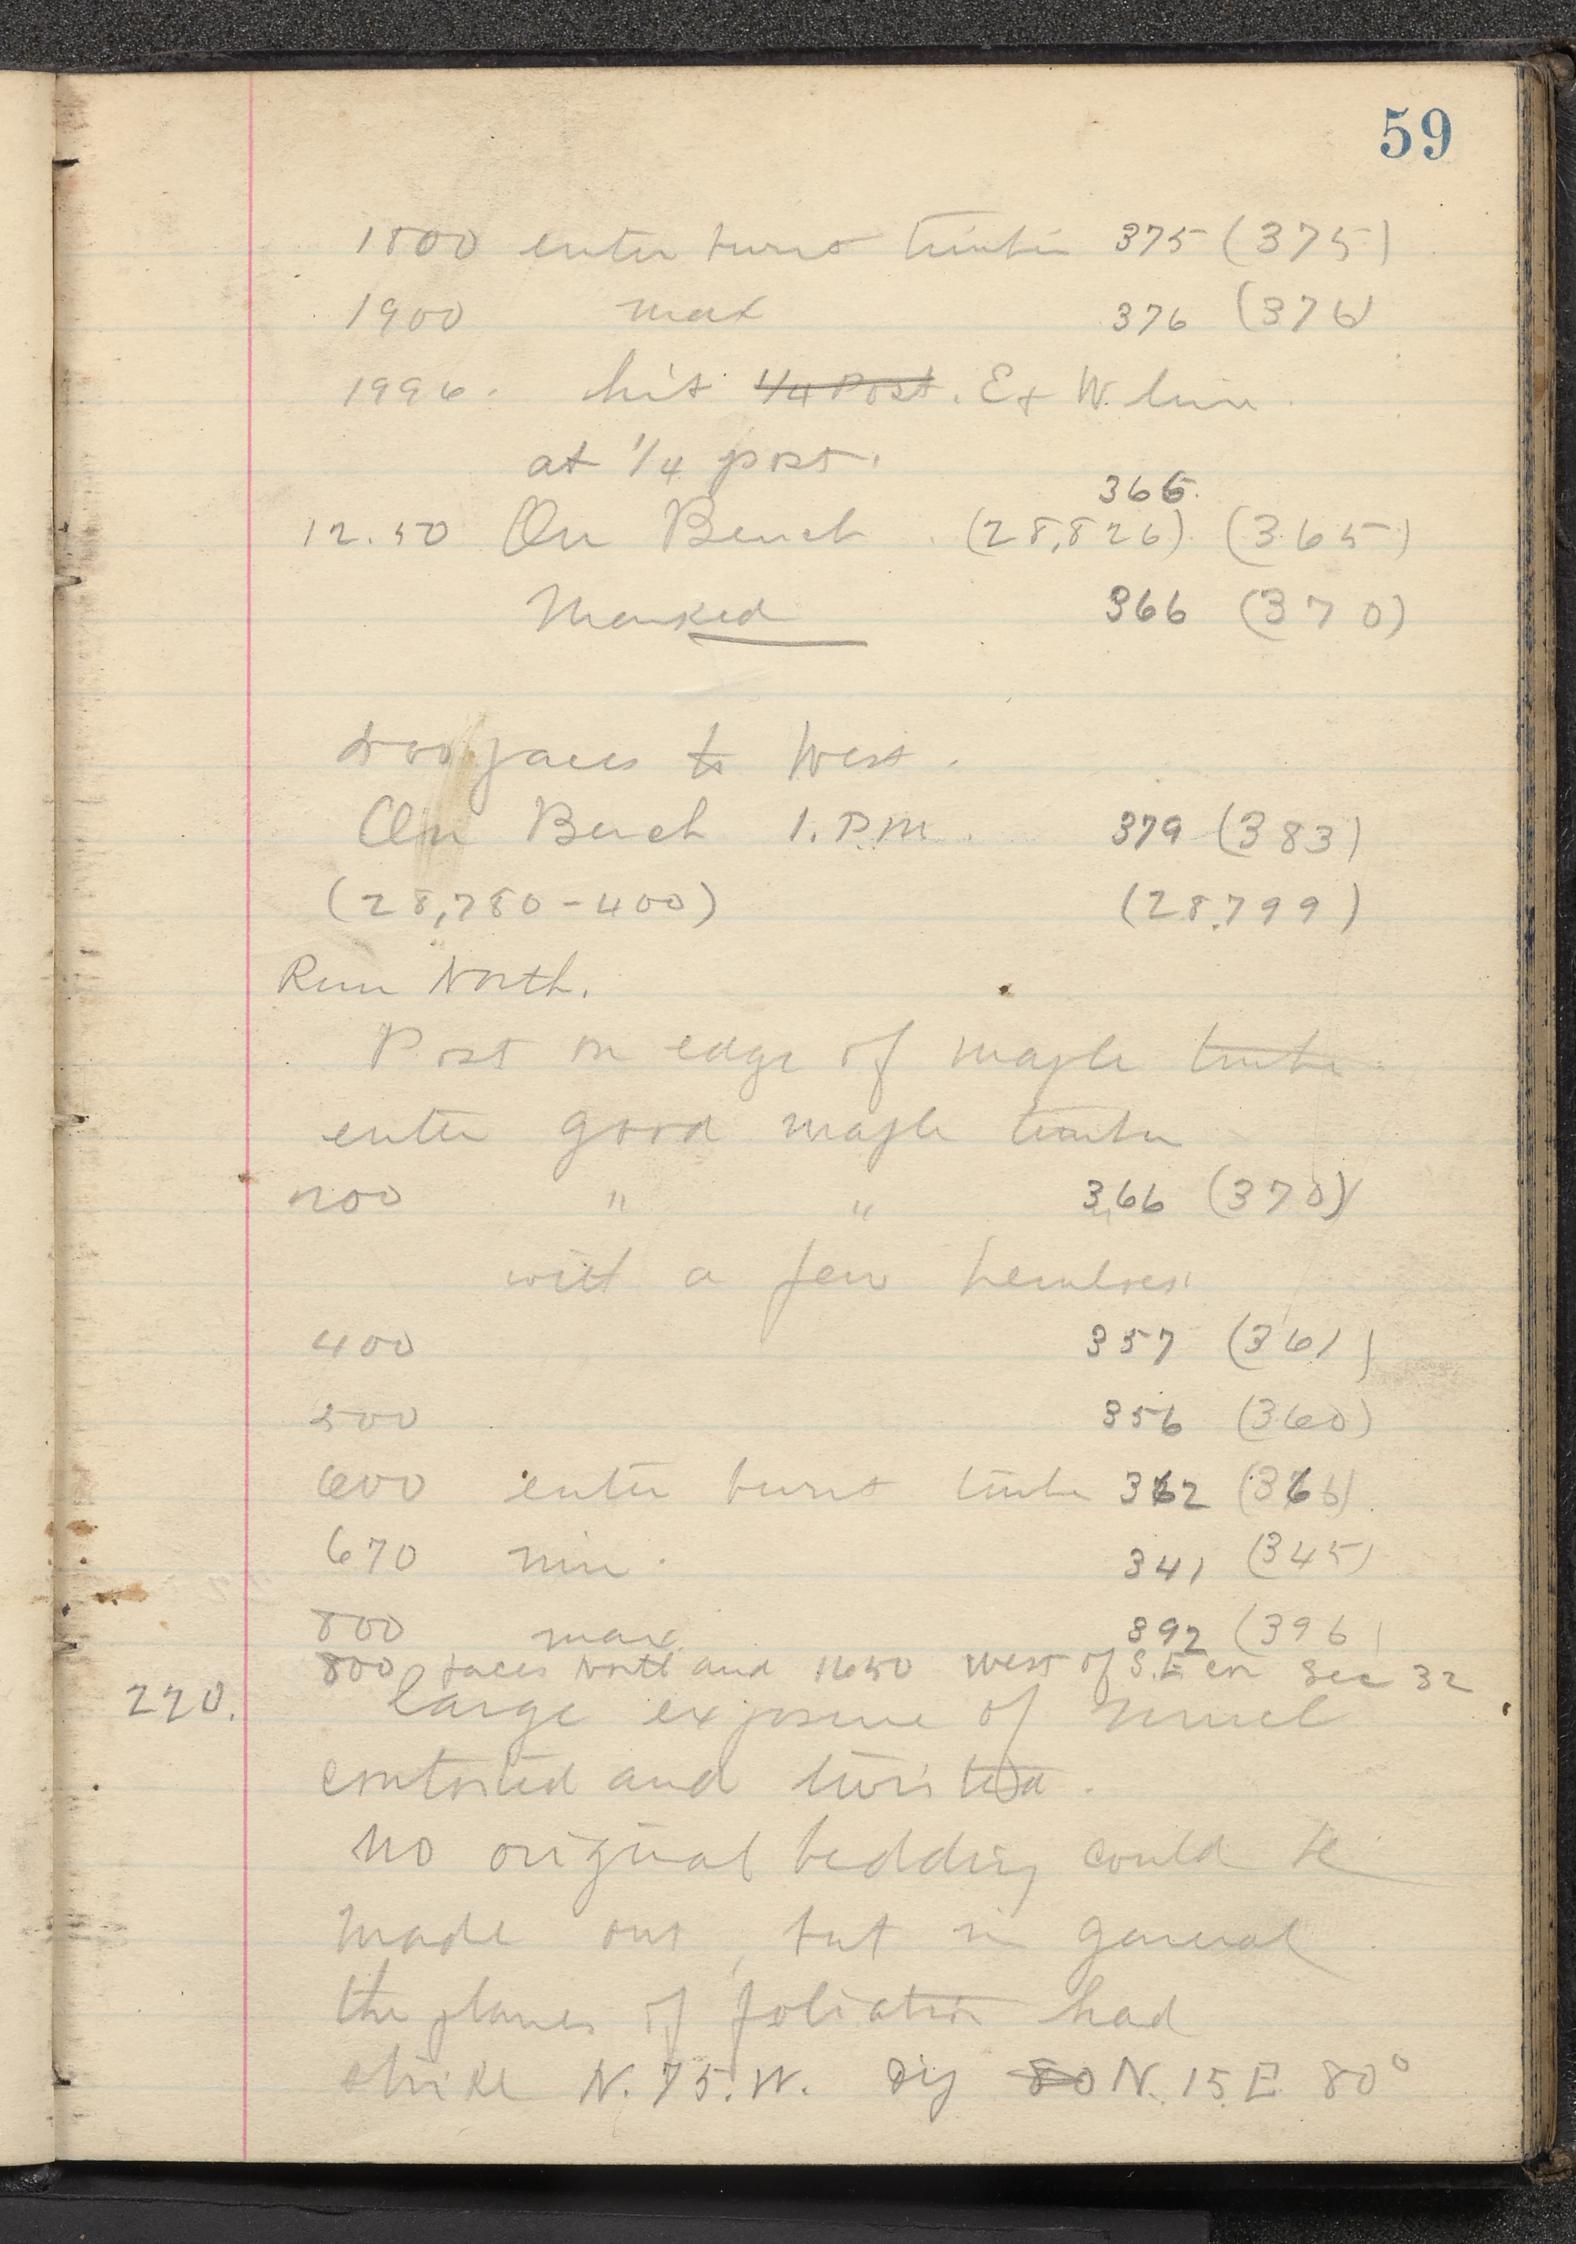 59
1800 enter burnt timber 375 (375)
1900 max 376 (376)
1996. hit 1/4 Post. E & W. line
at 1/4 post.
365.
12.50 On Bench (28,826) (365)
Marked 366 (370)
paces to West.
On Bench 1. P.M. 379 (383)
(28,780-400) (28,799)
Run North.
Post on edge of maple timber
enter good maple timber
200 " " 366 (370)
with a few hemlocks
400 357 (361)
500 356 (360)
600 enter burnt timber 362 (366)
670 min. 341 (345)
800 max. 392 (396)
800 paces North and 1650 West of S.E cor Sec 32
220. large exposure of
contorted and twisted.
No original bedding could be
made out, but in general
the planes of foliation had
strike N. 75. W. Dip 80 N. 15 E 80°